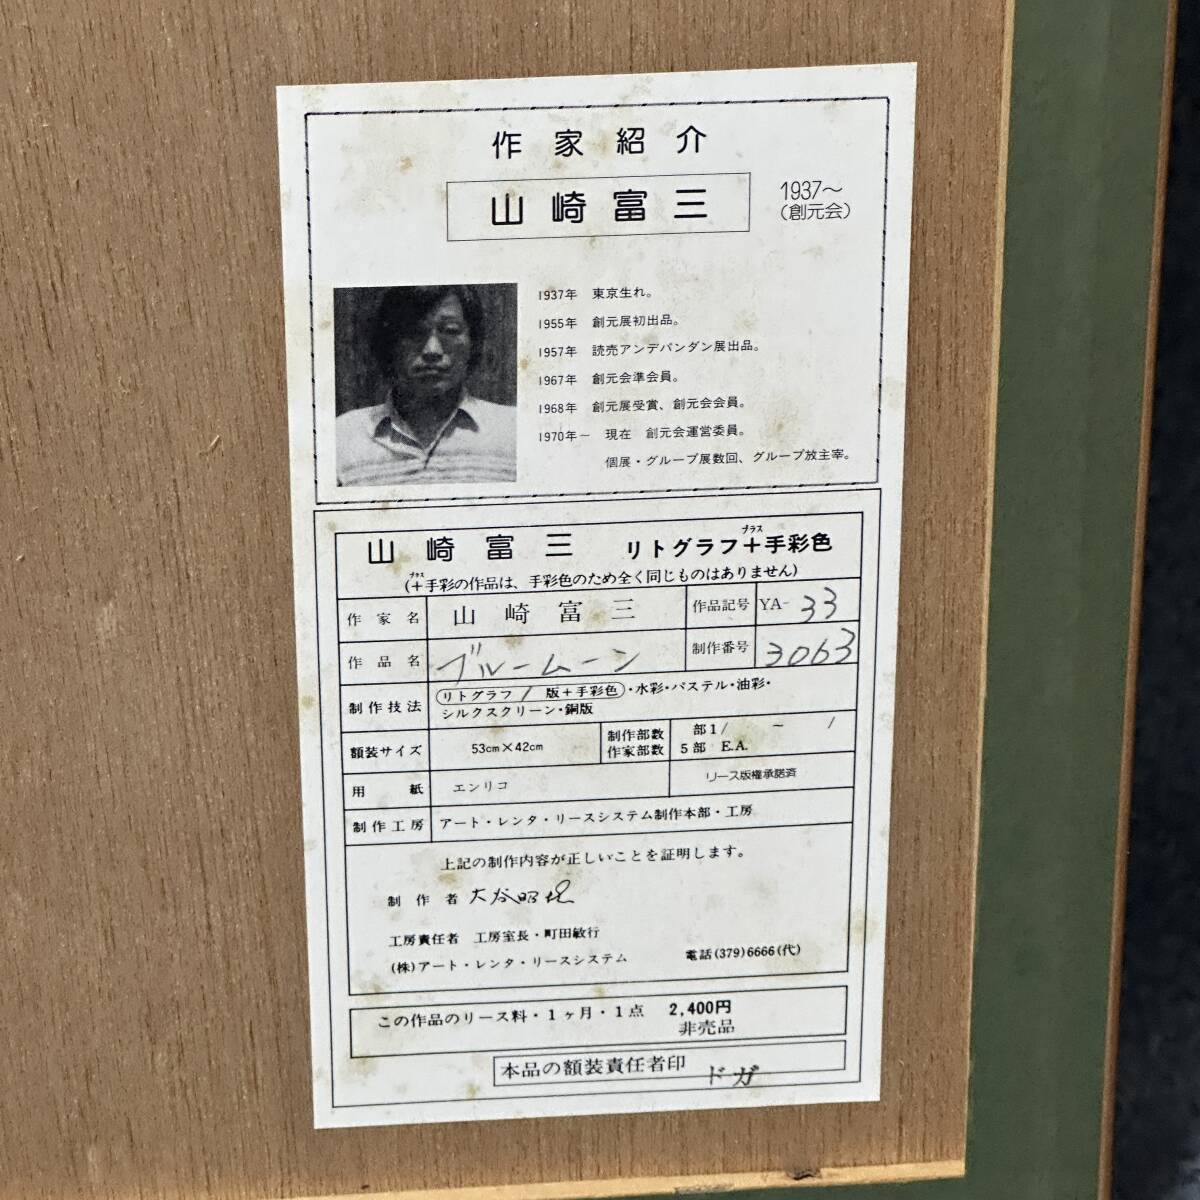 作家紹介
山崎富三
1937～
(創元会)
1937年 東京生れ。
1955年 創元展初出品。
1957年 読売アンデパンダン展出品。
1967年 創元会準会員。
1968年 創元展受賞、創元会会員。
1970年－ 現在 創元会運営委員。
個展・グループ展数回、グループ放主宰。
山崎富三 リトグラフ＋手彩色
プラス
(＋手彩の作品は、手彩色のため全く同じものはありません)
プラス
作家名 山崎富三 作品記号 YA-33
作品名 ブルームーン 制作番号 3063
制作技法 リトグラフ/版＋手彩色・水彩・パステル・油彩・
シルクスクリーン・銅版
額装サイズ 53cm×42cm 制作部数 部1/ ～ /
作家部数 5部 E.A.
用紙 エンリコ リース版権承諾済
制作工房 アート・レンタ・リースシステム制作本部・工房
上記の制作内容が正しいことを証明します。
制作者 大谷昭
工房責任者 工房室長・町田敏行
(株)アート・レンタ・リースシステム 電話(379)6666(代)
この作品のリース料・1ヶ月・1点 2,400円
非売品
本品の額装責任者印 ドガ